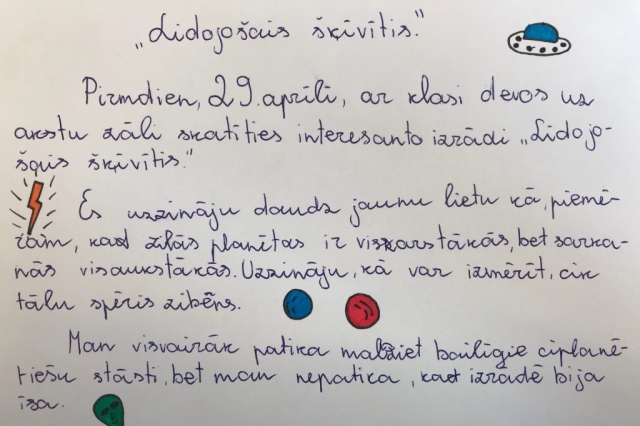 „Lidojošais šķīvītis."
Pirmdien, 29. aprīlī, ar klasi devos uz
akstu zāli skatīties interesanto izrādi „Lidojo-
šais šķīvītis."
Es uzzināju daudz jaunu lietu kā, piemē-
ram, kad zilās planētas ir viskarstākās, bet sarka-
nās visaukstākās. Uzzināju, kā var izmērīt, cik
tālu spēris zibēns.
Man visvairāk patika mabziet bailīgie ciplanē-
tiešu stāsti, bet man nepatika, kad izrādē bija
īsa.